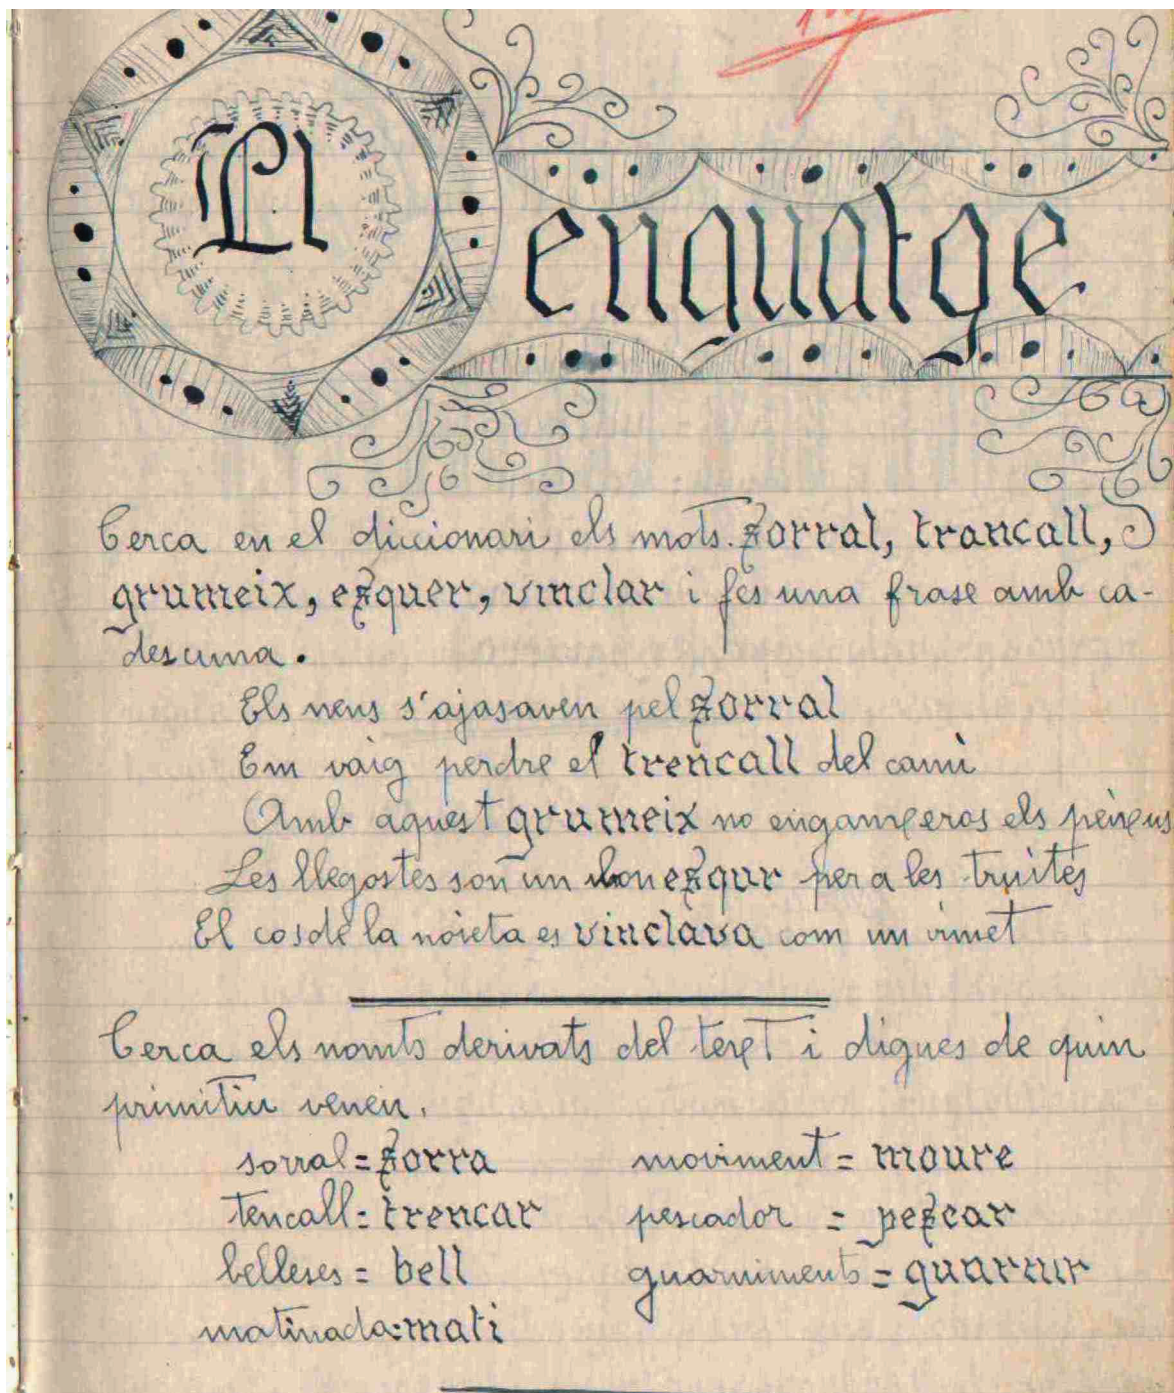 Llenguatge
Cerca en el diccionari els mots. sorral, trancall,
grumeix, esquer, vinclar i fés una frase amb ca-
descuna.
Els nens s'ajasaven pel sorral
Em vaig perdre el trencall del camì
Amb aquest grumeix no enganxeros els peixus
Les llegostes son un bon esqur per a les truites
El cos de la noieta es vinclava com un vimet
Cerca els nomts derivats del text i digues de quin
primitiu venen.
sorral = sorra moviment = moure
tencall = trencar pescador = pescar
belleses = bell guarniments = guarnir
matinada = mati